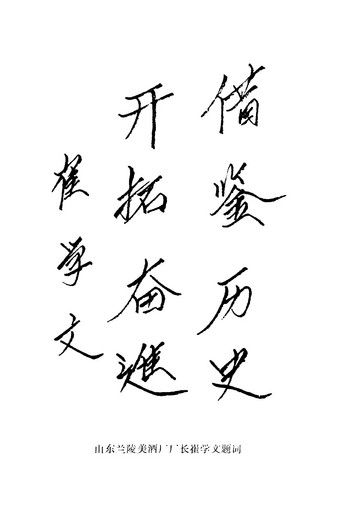 借鉴历史
开拓奋進
崔学文
山东兰陵美酒厂厂长崔学文题词